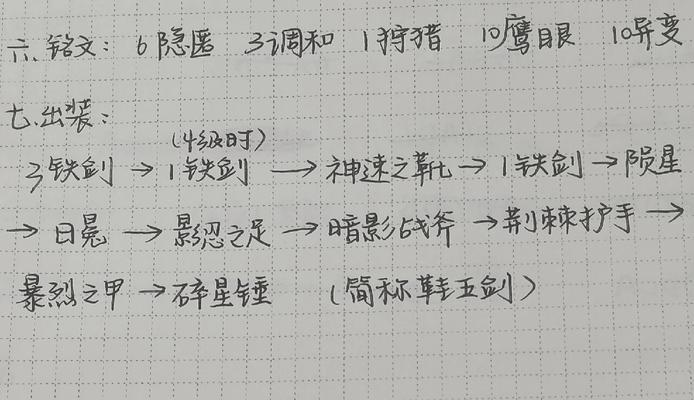 六.铭文：6隐匿 3调和 1狩猎 10鹰眼 10异变
七.出装：
(4级时)
3铁剑→1铁剑→神速之靴→1铁剑→陨星
→日冕→影忍之足→暗影战斧→荆棘护手→
暴烈之甲→碎星锤 (简称鞋五剑)